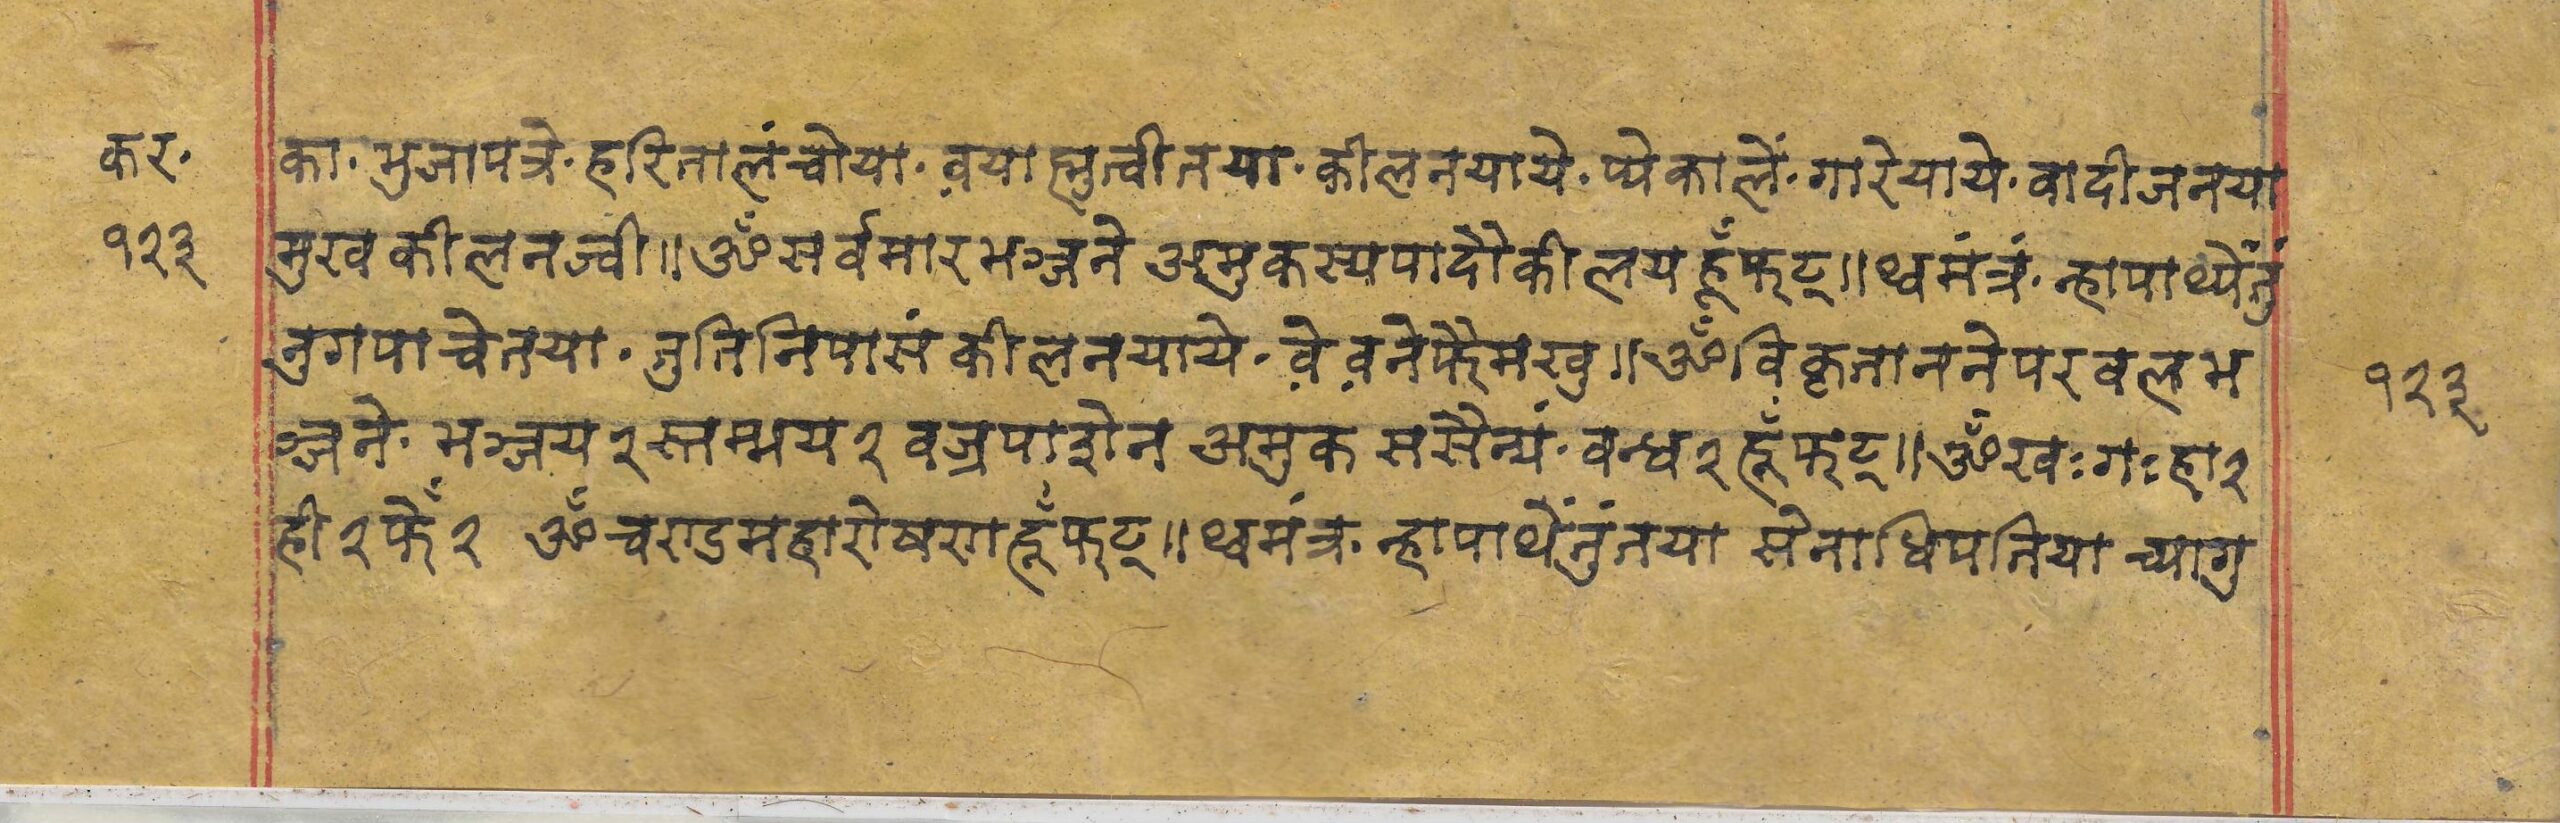 कर॰ का॰ भुजापत्रे॰ हरितालंचोया॰ व़याह्मुत्वीतया॰ कीलनयाये॰ प्येकालें॰ गारेयाये॰ वादीजनया
१२३ मुखकीलनज्वी॥ ॐ सर्वमारभञ्जने अमुकस्यपादौकीलय हूँफट्॥ थ्वमंत्रं॰ न्हापाथ्येंनुं
नुगपाचेतया॰ तुतिनिपासं कीलनयाये॰ व़ेव़नेफैमखु॥ ॐ विकृताननेपरवलभ १२३
ञ्जने॰ भञ्जय२ स्तम्भय२ वज्रपाशेन अमुक ससैन्यं॰ वन्ध२ हूँफट्॥ ॐ खः गः हा२
ही२ फेँ२ ॐ चण्डमहारोषण हूँफट्॥ थ्वमंत्र॰ न्हापाथेंनुंतया सेनाधिपतिया च्यागु